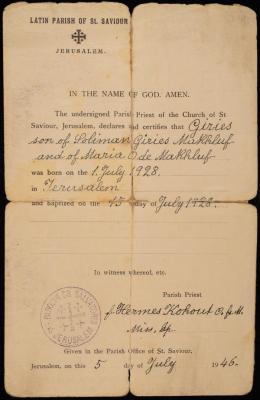 LATIN PARISH OF St. SAVIOUR
JERUSALEM.
IN THE NAME OF GOD. AMEN.
The undersigned Parish Priest of the Church of St
Saviour, Jerusalem, declares and certifies that Giries
son of Soliman Giries Makhluf
and of Maria O de Makhluf
was born on the 1. July 1928.
in Jerusalem
and baptized on the 15 day of July 1928.
In witness whereof, etc.
Parish Priest
Hermes Kohout O.f.M.
Miss. Ap.
JERUSALEM
Given in the Parish Office of St. Saviour,
Jerusalem, on this 5 day of July 1946.